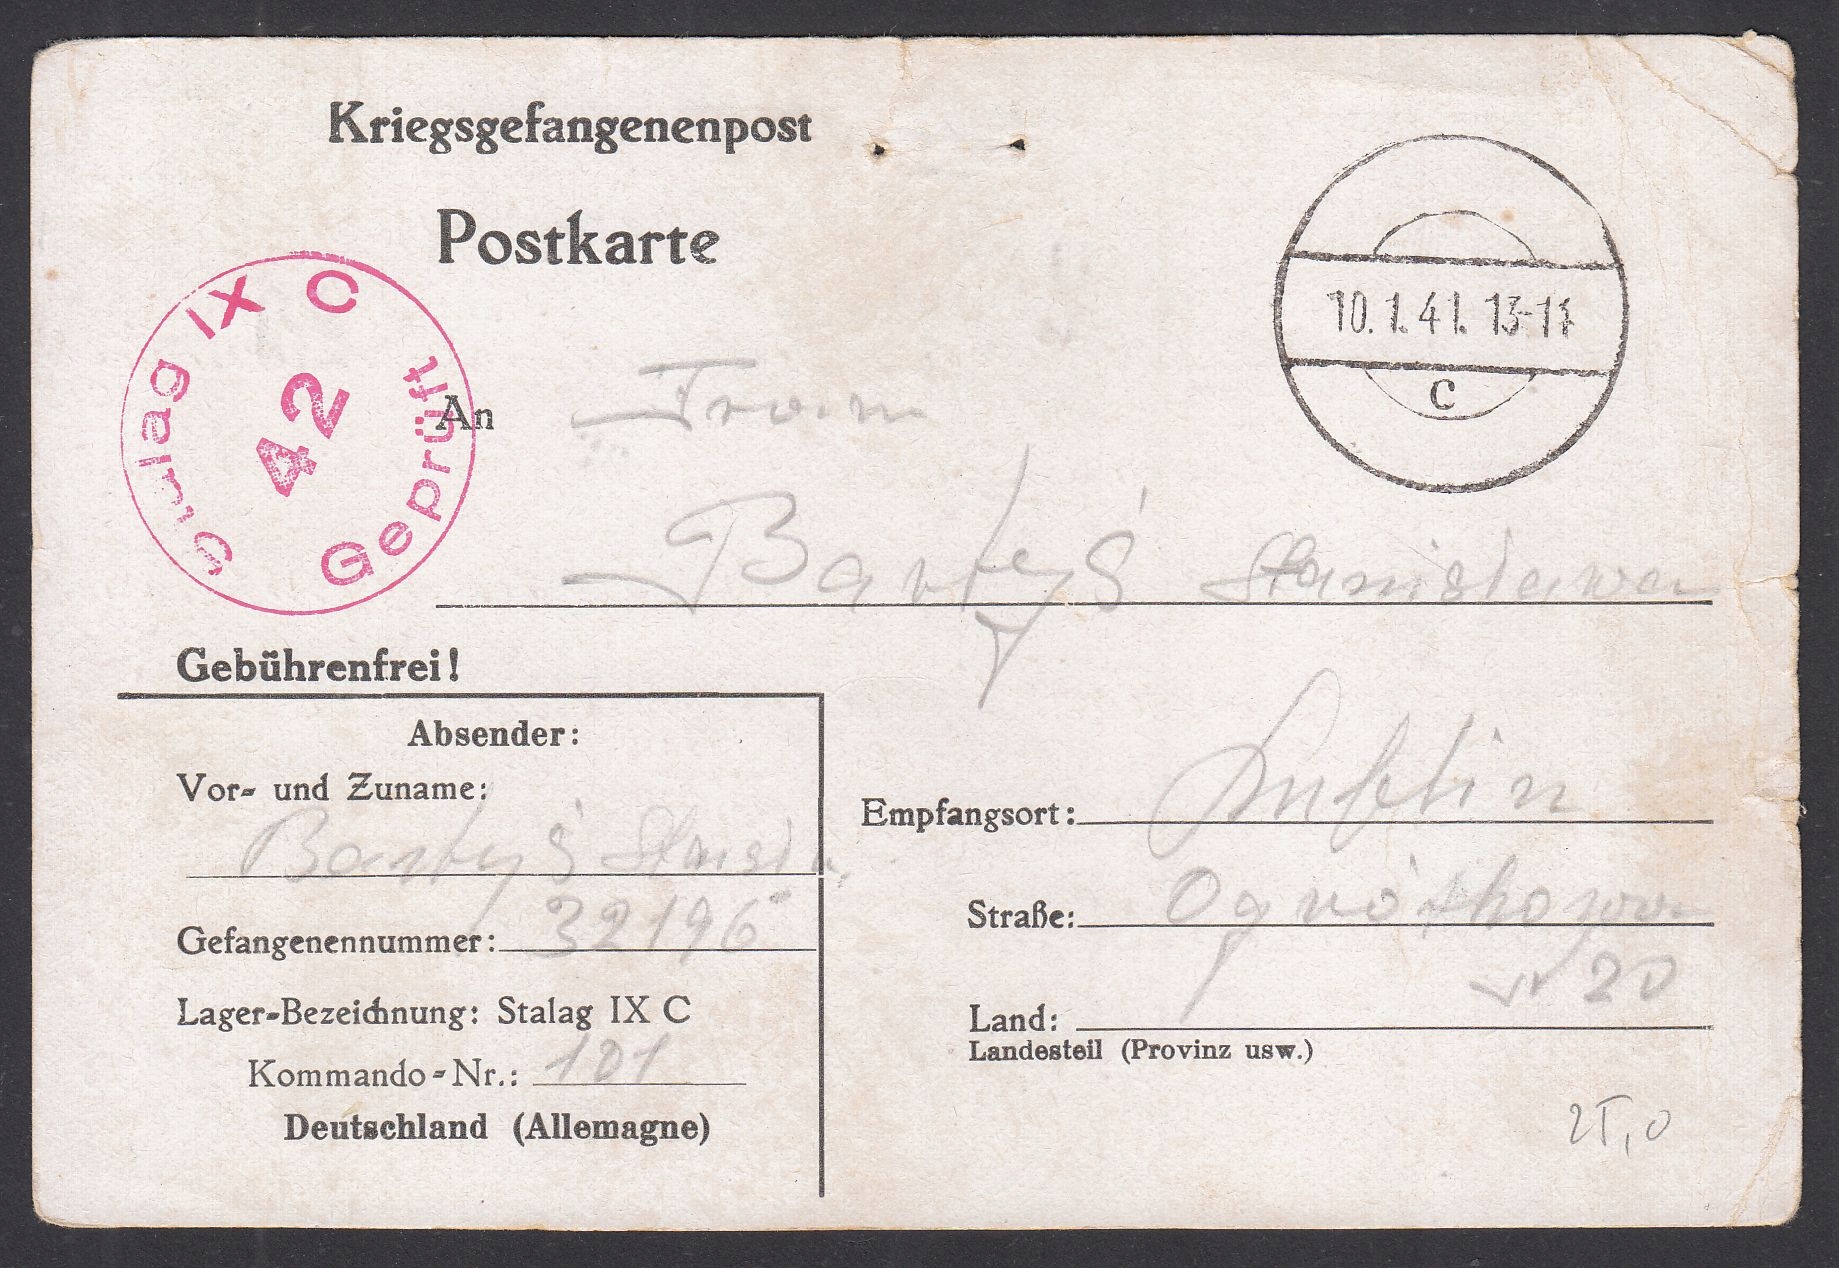 Kriegsgefangenenpost
Postkarte
Stalag IX C
42
Geprüft
10.1.41. 13-
c
An Frau
Bartyś Stanisława
Gebührenfrei!
Absender:
Vor- und Zuname:
Bartyś
Gefangenennummer: 32196
Lager-Bezeichnung: Stalag IX C
Kommando-Nr.: 101
Deutschland (Allemagne)
Empfangsort: Lublin
Straße: Ogródkowa
nr 20
Land:
Landesteil (Provinz usw.)